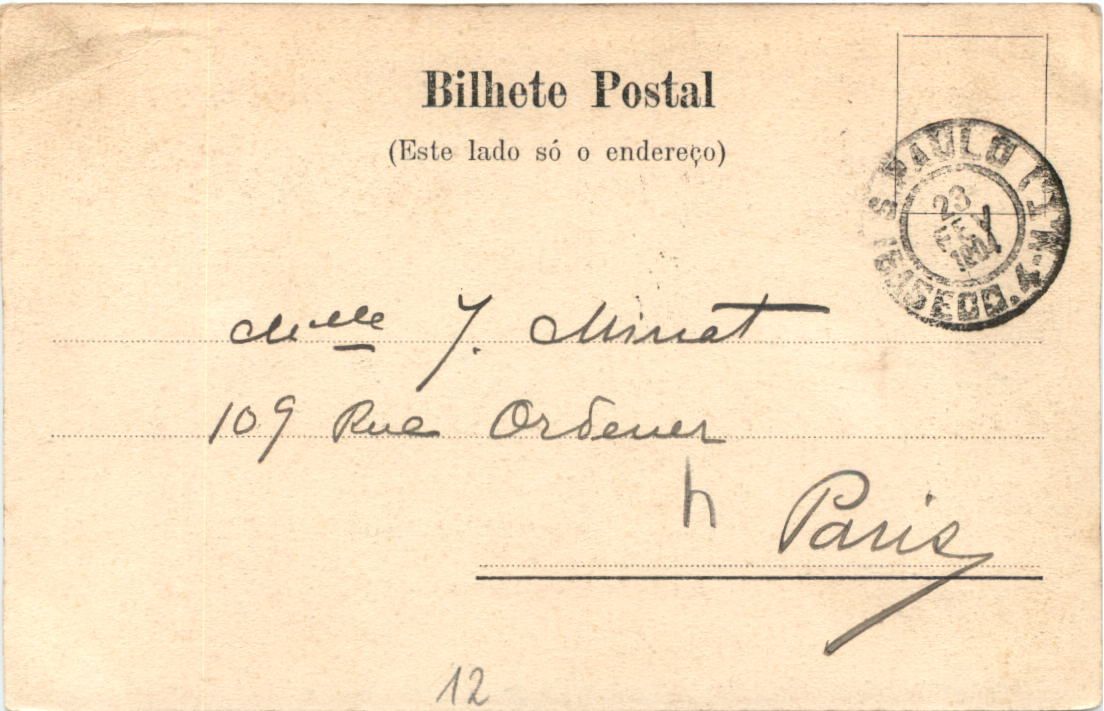 Bilhete Postal
(Este lado só o endereço)
S. PAULO
23
FEV
SECO. 4
Mlle J. Minat
109 Rue Ordener
h Paris
12